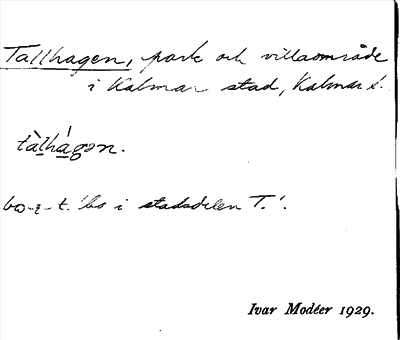 Tallhagen, park och villaområde
i Kalmar stad, Kalmar l.
tàlhágen.
bo - i - t. 'bo i stadsdelen T.'.
Ivar Modéer 1929.